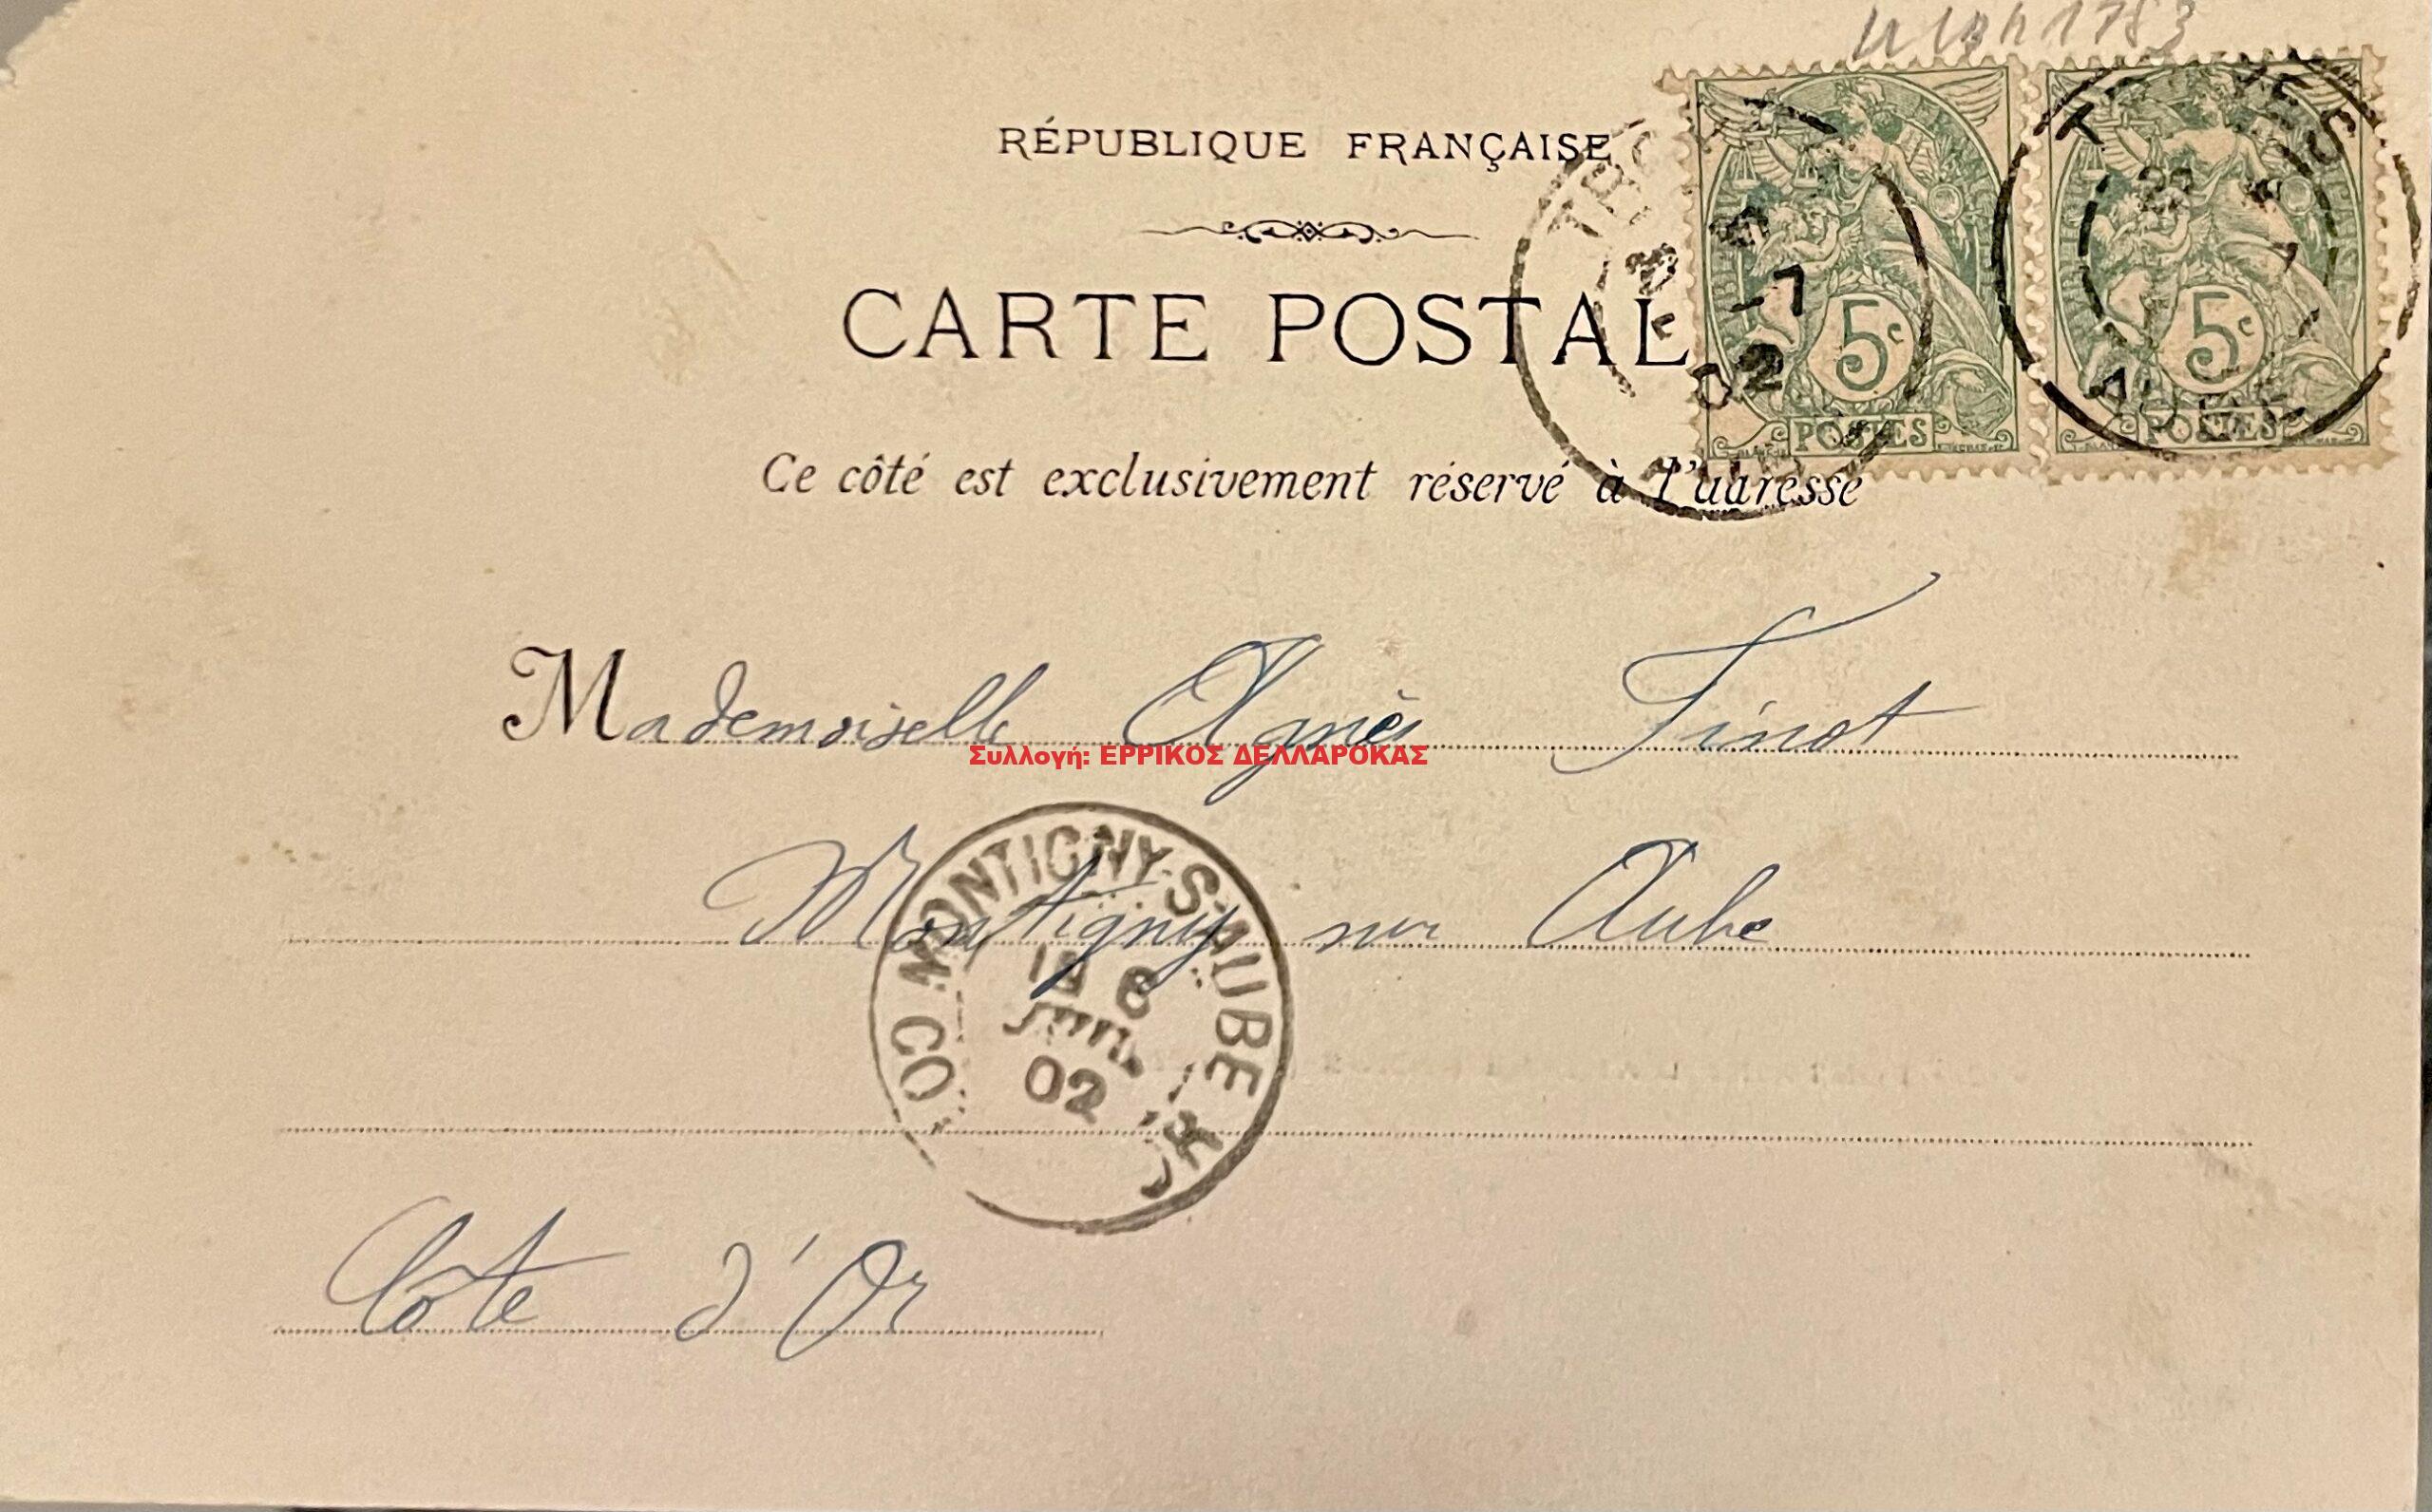 RÉPUBLIQUE FRANÇAISE
CARTE POSTAL
Ce côté est exclusivement réservé à l'adresse
-7
02
5c 5c
POSTES POSTES
Mademoiselle Agnès Finot
Συλλογή: ΕΡΡΙΚΟΣ ΔΕΛΛΑΡΟΚΑΣ
Montigny sur Aube
MONTIGNY-S-AUBE
8
JUIL
02
Cote d'Or